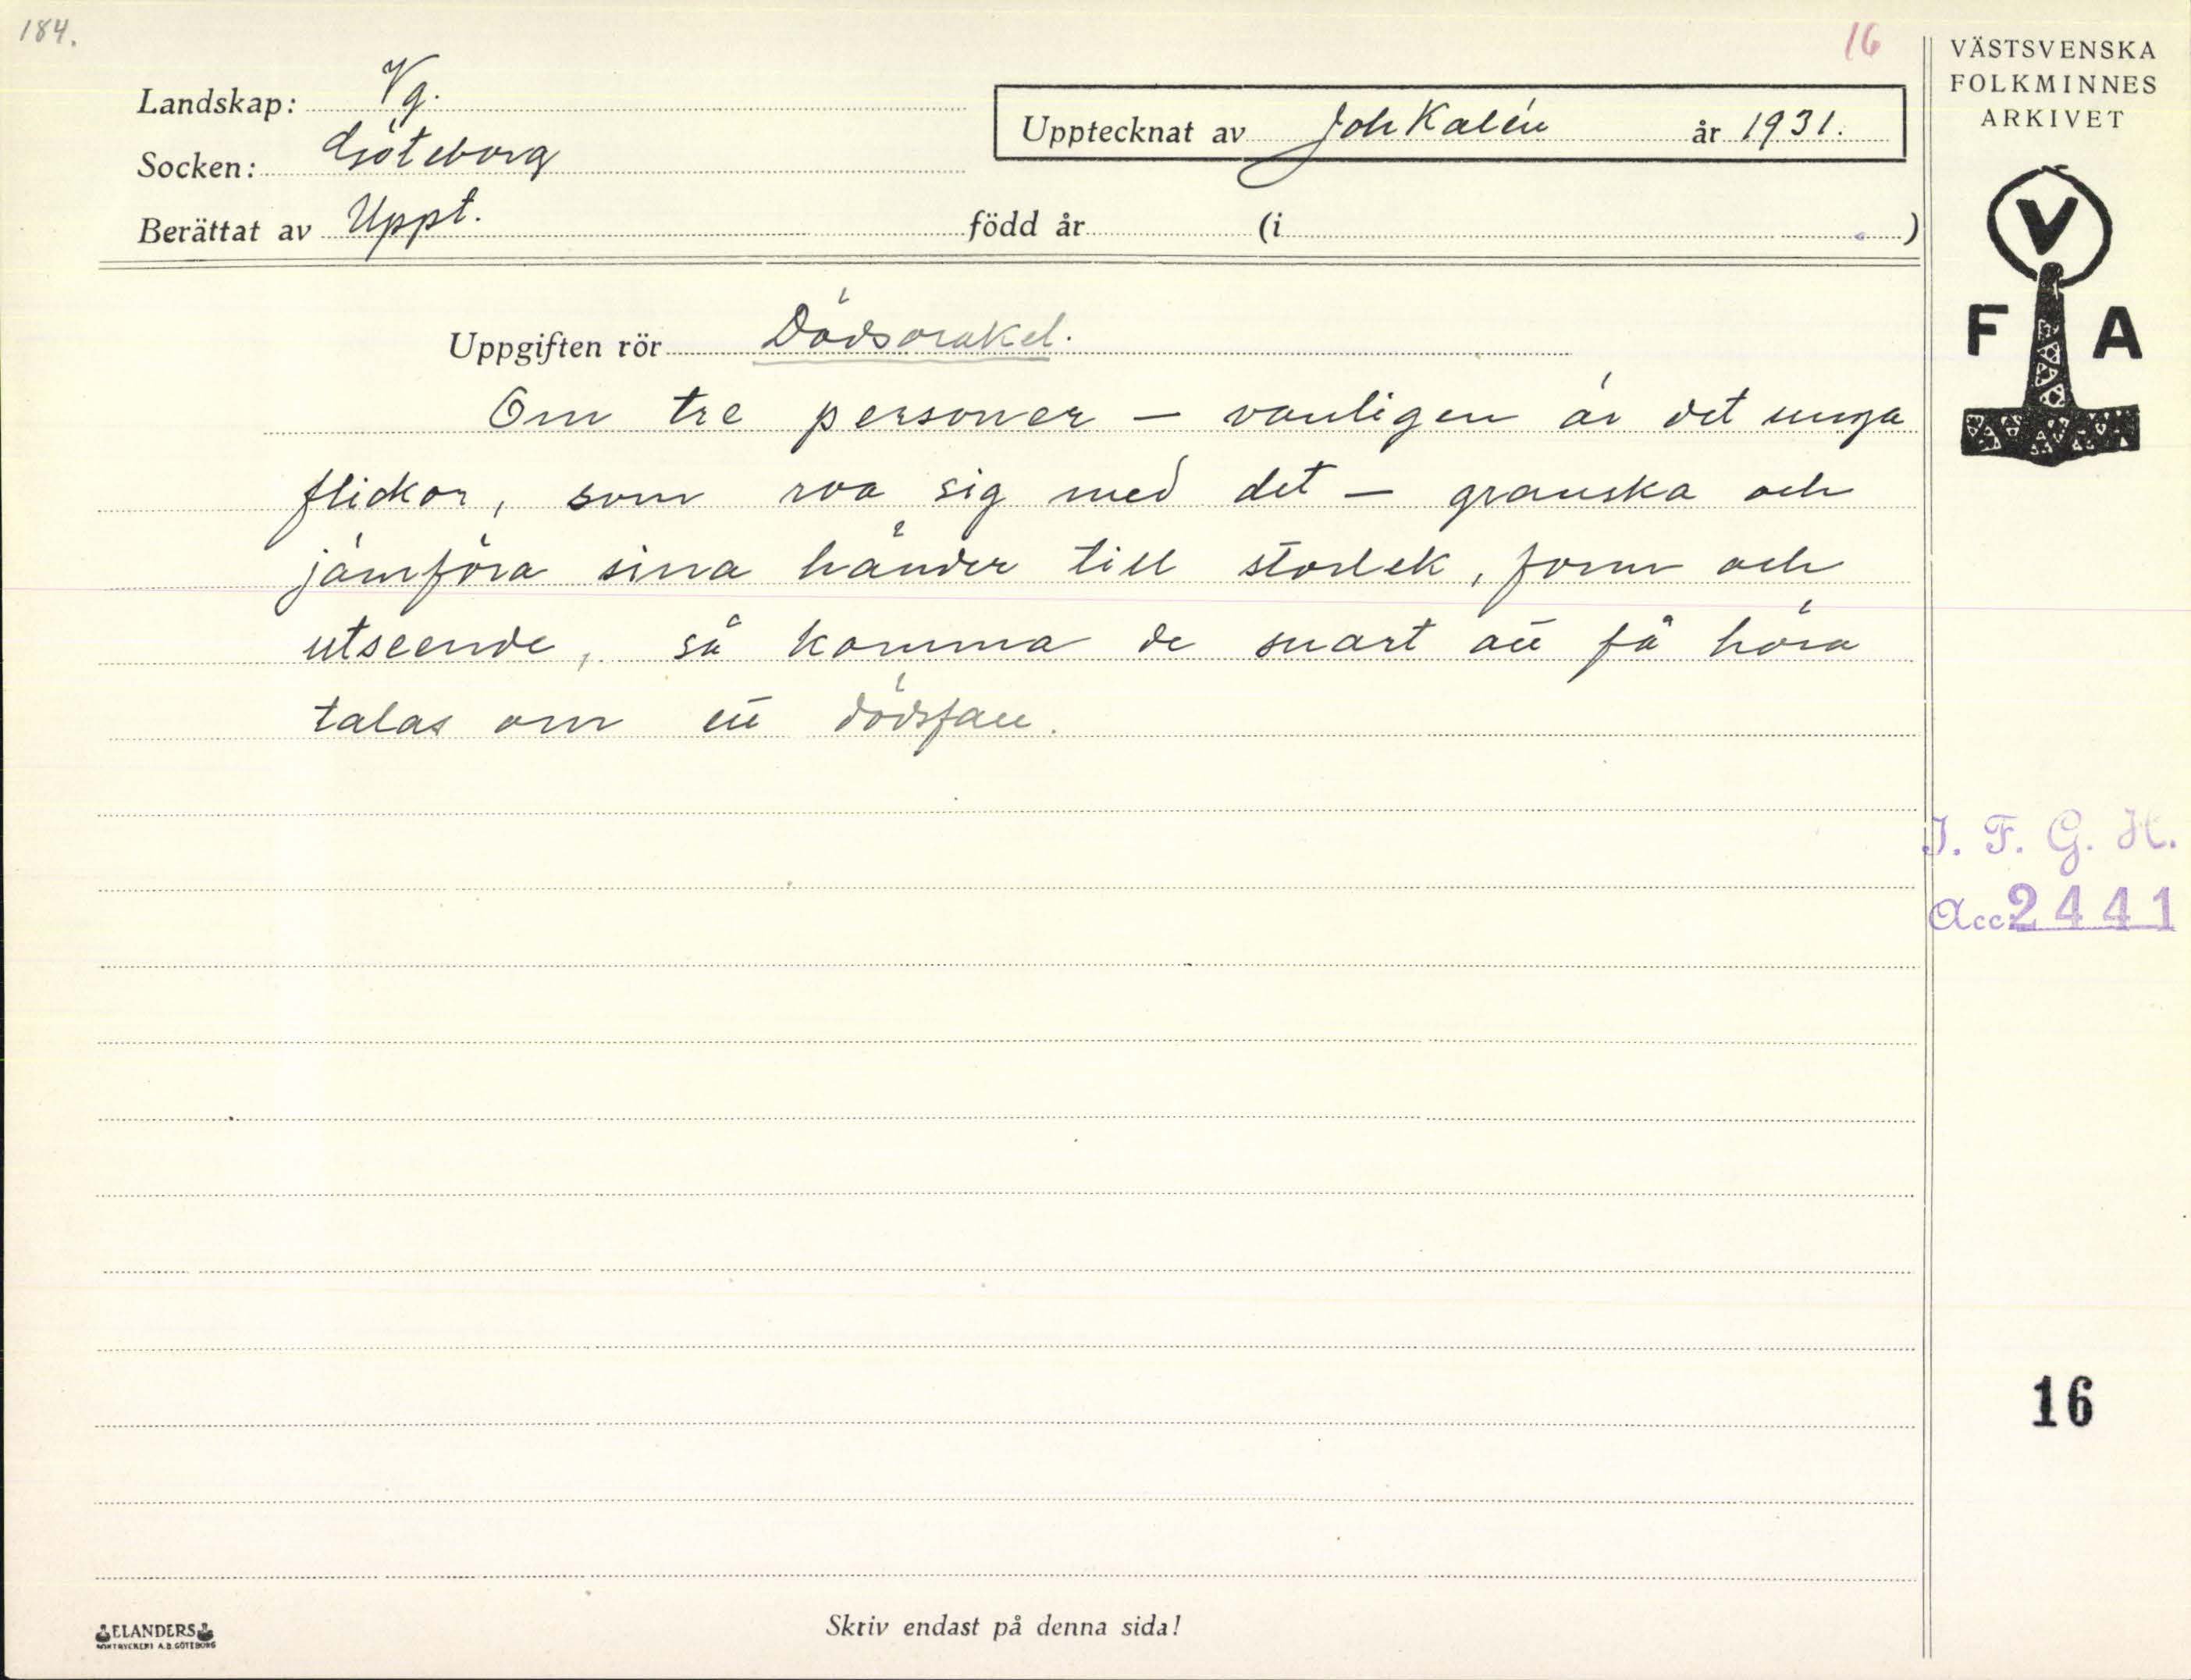 184.
16
Landskap: Vg.
Socken: Göteborg
Berättat av Uppt. född år (i )
Upptecknat av Joh Kalén år 1931.
VÄSTSVENSKA
FOLKMINNES
ARKIVET
V
F A
Uppgiften rör Dödsorakel.
Om tre personer – vanligen är det unga
flickor, som roa sig med det – granska och
jämföra sina händer till storlek, form och
utseende, så komma de snart att få höra
talas om ett dödsfall.
I. F. G. H.
Acc 2441
16
ELANDERS
BOKTRYCKERI A.B. GÖTEBORG
Skriv endast på denna sida!